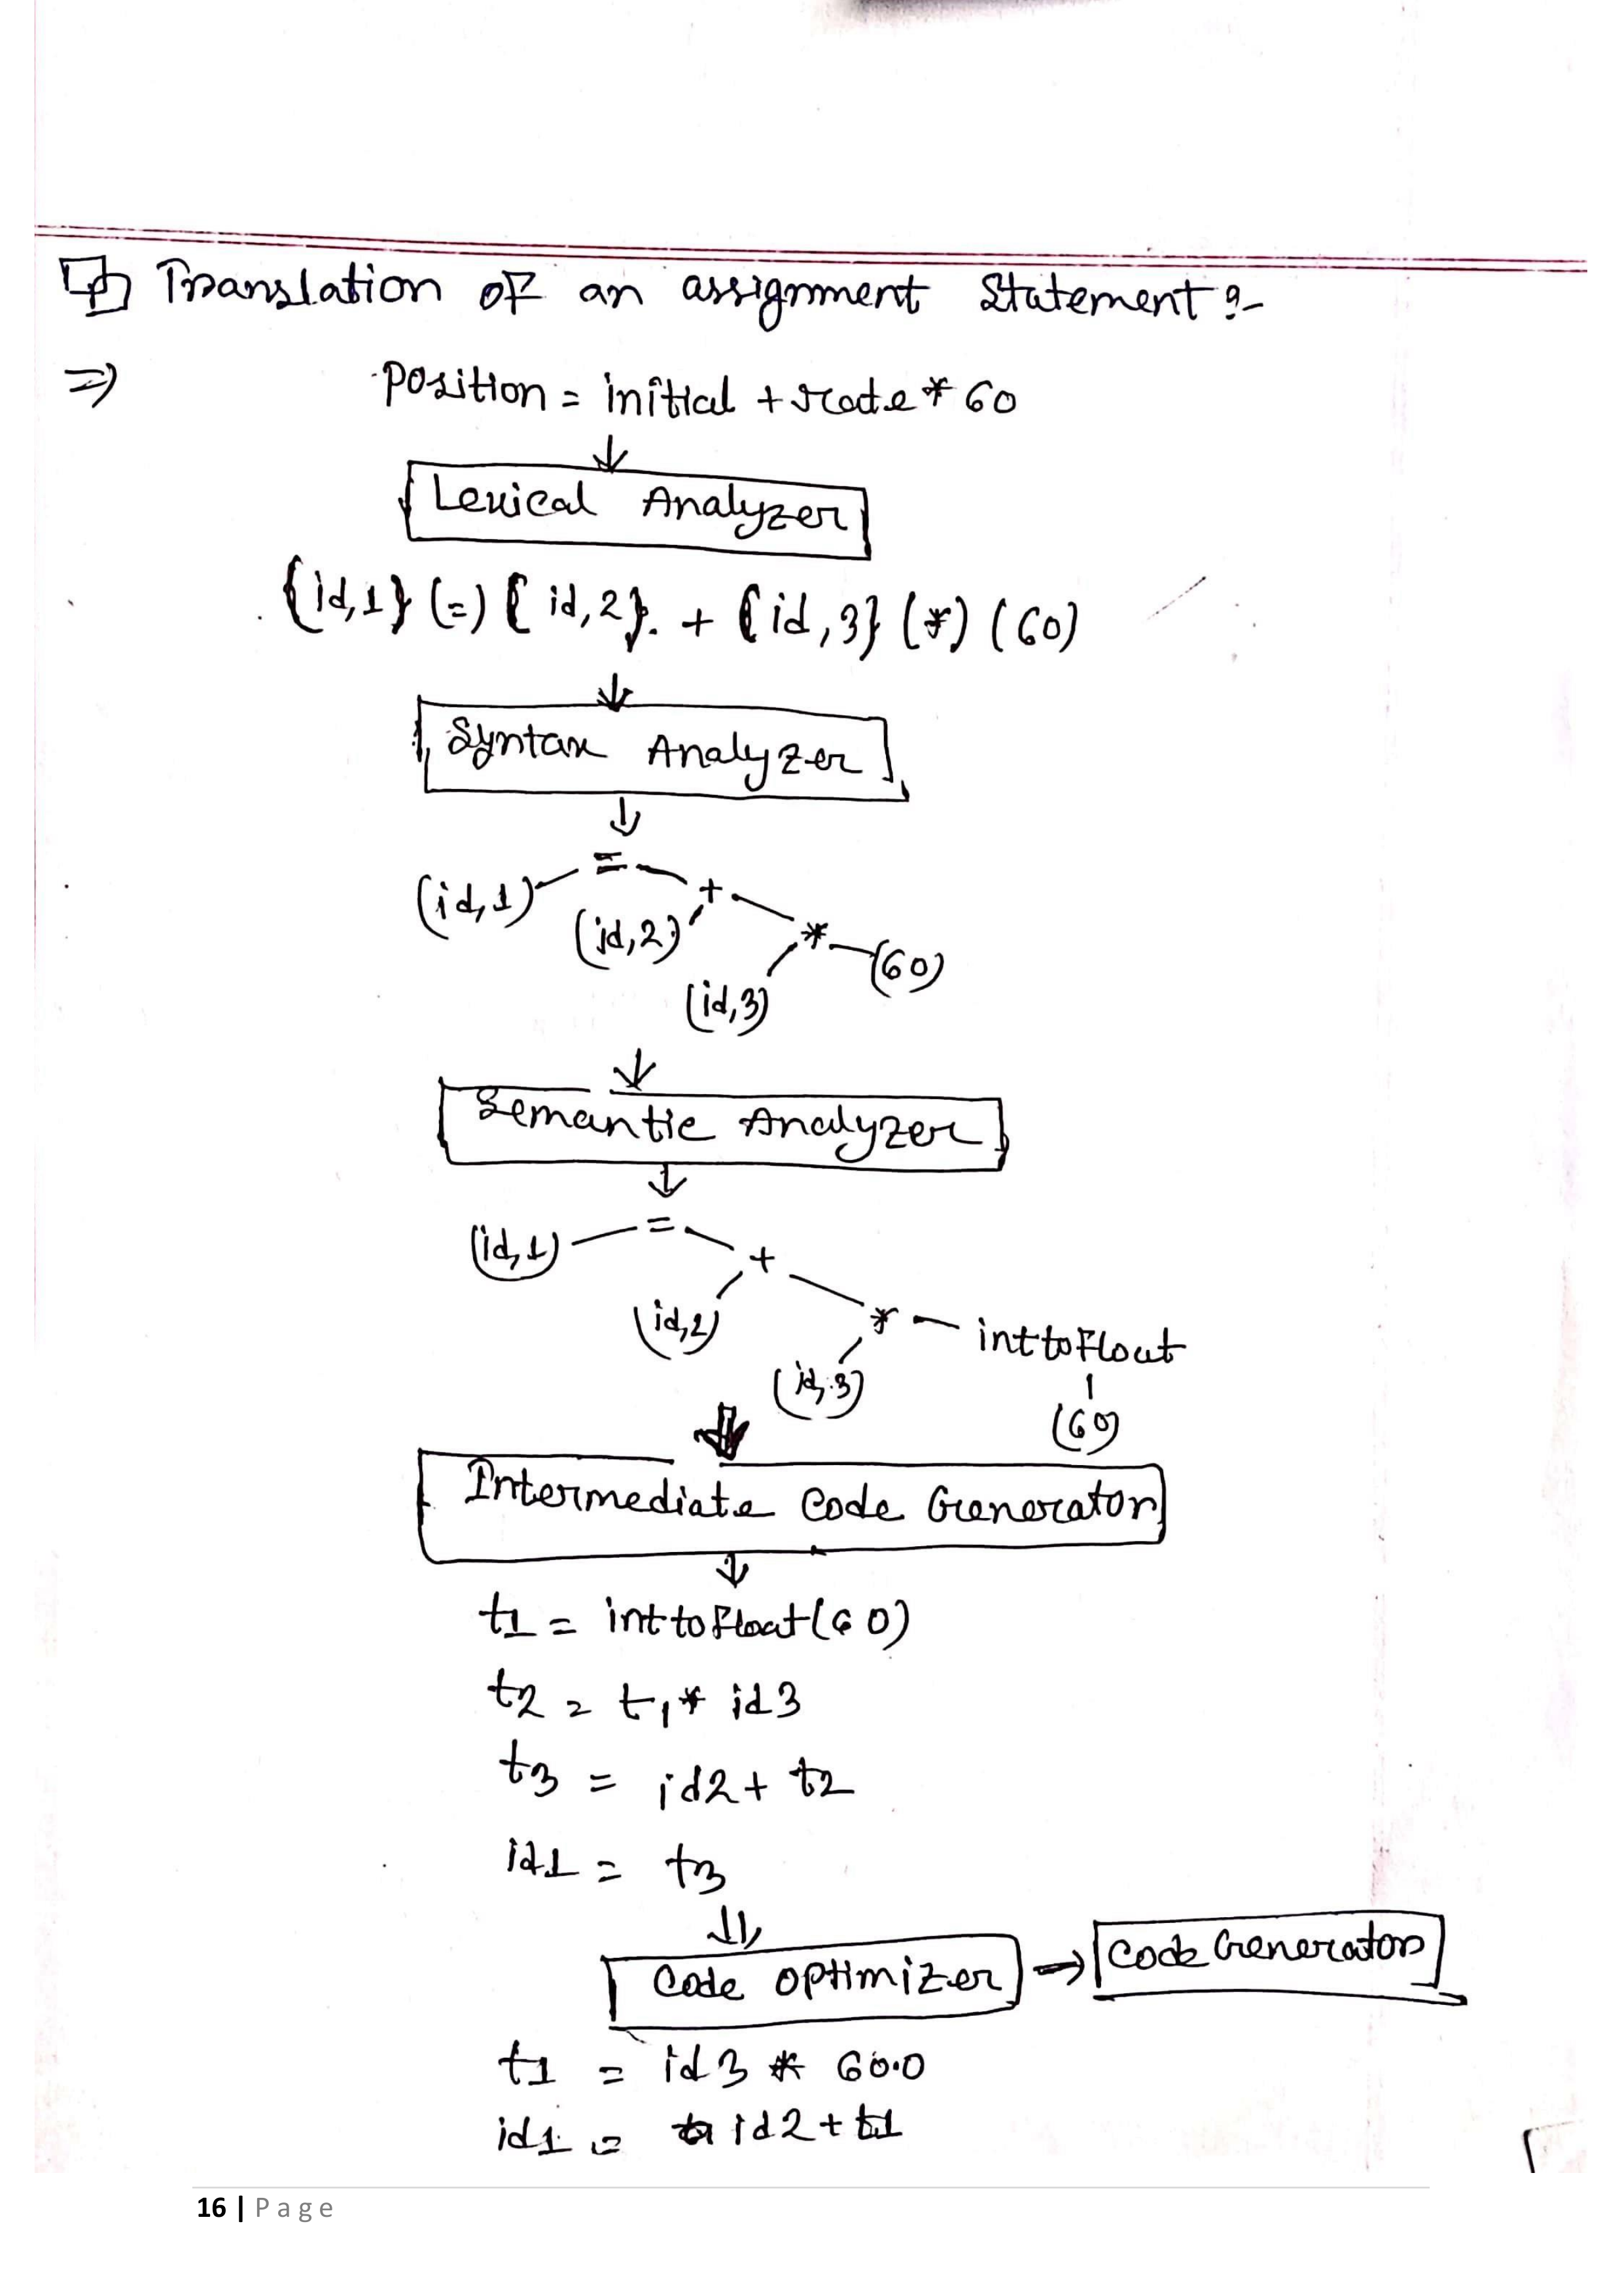 Translation of an assignment Statement :-
⇒ Position = initial + rate * 60
↓
Lexical Analyzer
{id,1} (=) {id,2} + {id,3} (*) (60)
↓
Syntax Analyzer
↓
=
(id,1) +
(id,2) *
(id,3) (60)
↓
Semantic Analyzer
↓
(id,1) =
+
(id,2) * inttofloat
(id,3) (60)
⇓
Intermediate Code Generator
↓
t1 = inttofloat(60)
t2 = t1 * id3
t3 = id2 + t2
id1 = t3
⇓
Code Optimizer → Code Generator
t1 = id3 * 60.0
id1 = id2 + t1
16 | Page